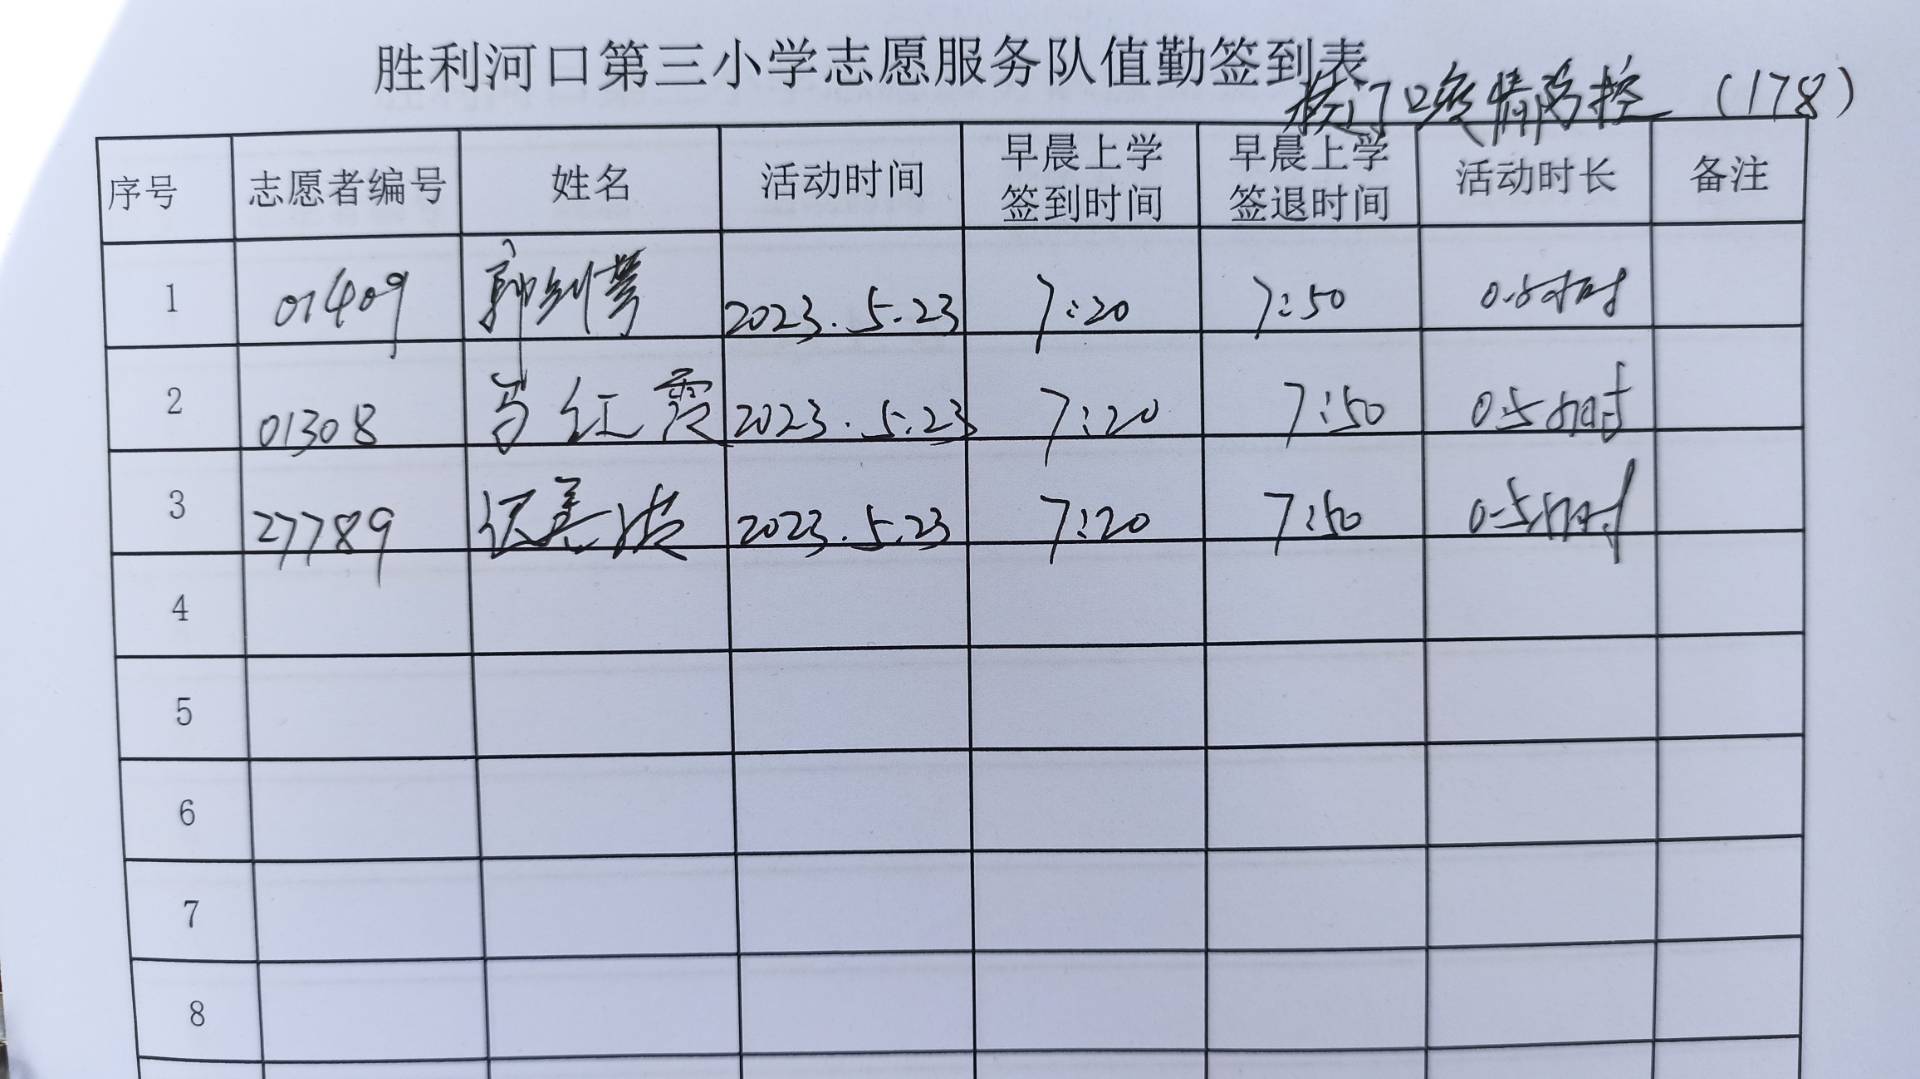 胜利河口第三小学志愿服务队值勤签到表
校门口疫情防控 (178)
序号 志愿者编号 姓名 活动时间 早晨上学签到时间 早晨上学签退时间 活动时长 备注
1 01409 2023.5.23 7:20 7:50 0.5小时
2 01308 红霞 2023.5.23 7:20 7:50 0.5小时
3 27789 2023.5.23 7:20 7:50 0.5小时
4
5
6
7
8